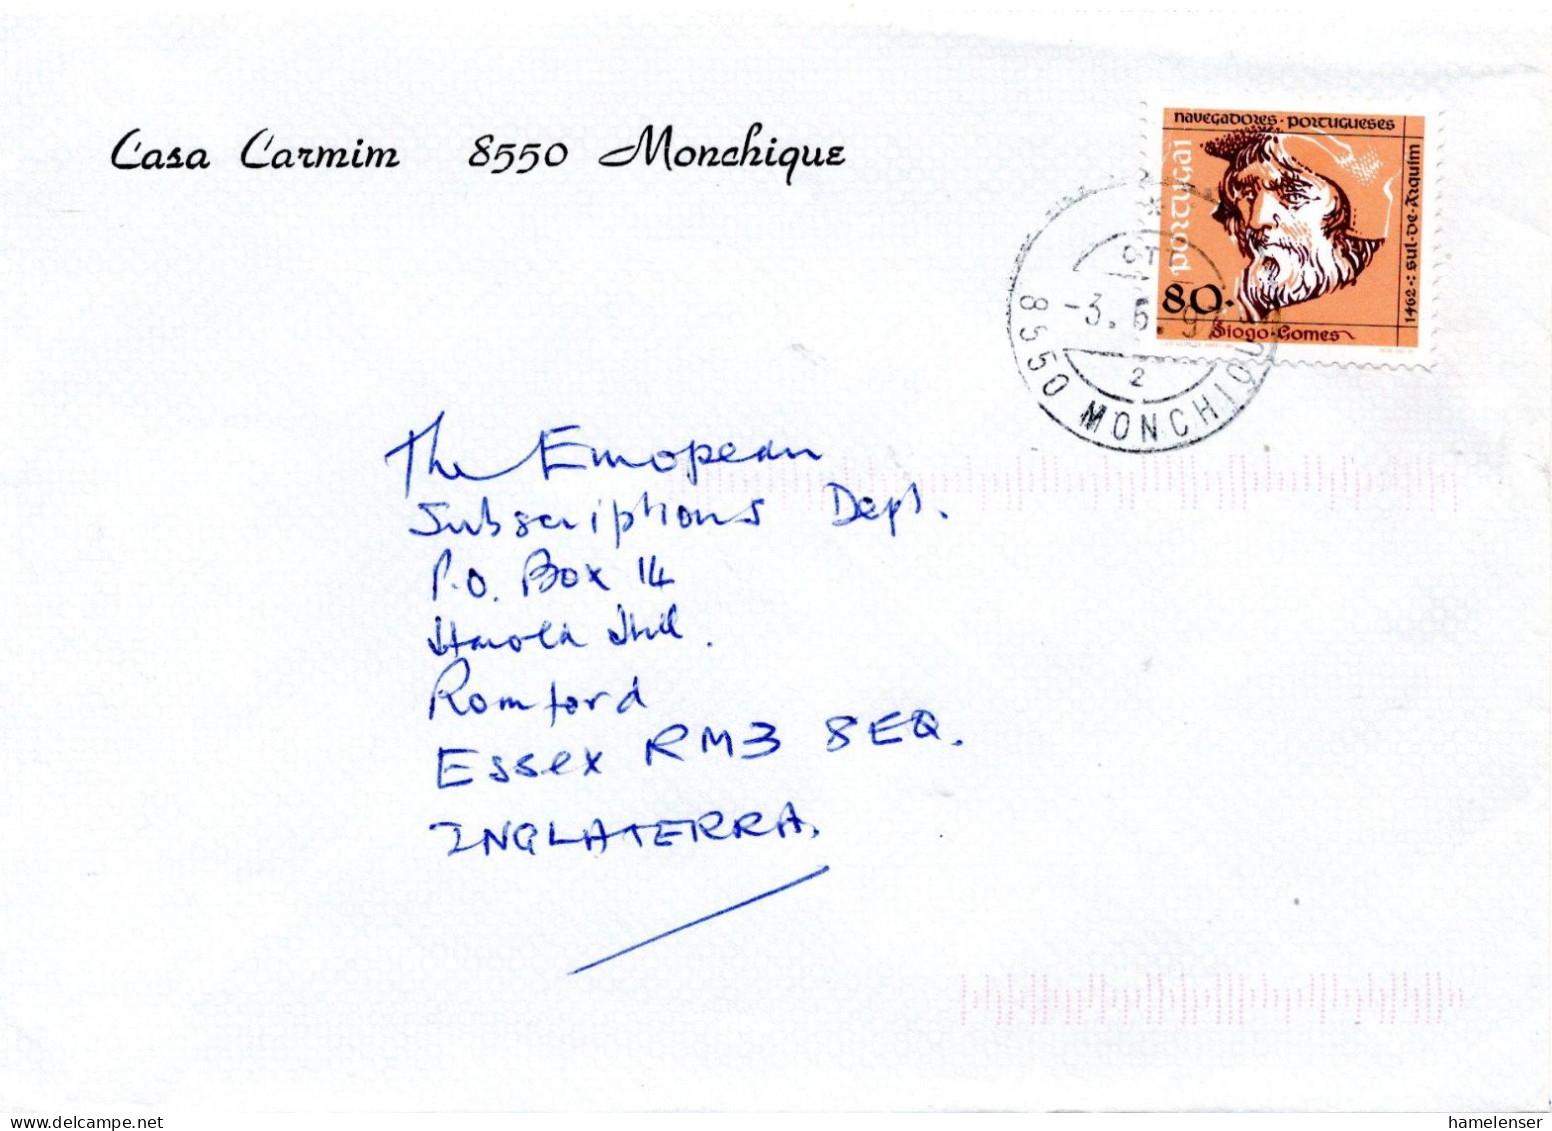 Casa Carmim 8550 Monchique
navegadores · portugueses
portugal
1462-: sul·de·Arquim
80.
Diogo·Gomes
CTT
-3. 6. 97
2
8550 MONCHIQUE
The European
Subscriptions Dept.
P.O. Box 14
Harold Hill.
Romford
Essex RM3 8EQ.
INGLATERRA.
hamelenser